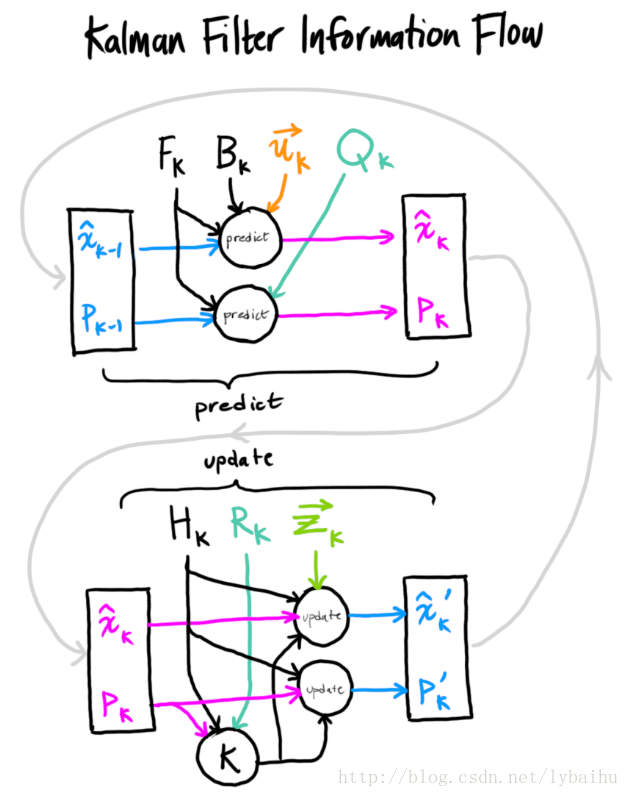 Kalman Filter Information Flow
Fₖ Bₖ u⃗ₖ Qₖ
x̂ₖ₋₁ predict x̂ₖ
Pₖ₋₁ predict Pₖ
predict
update
Hₖ Rₖ z⃗ₖ
x̂ₖ update x̂ₖ′
Pₖ update Pₖ′
K
http://blog.csdn.net/lybaihu